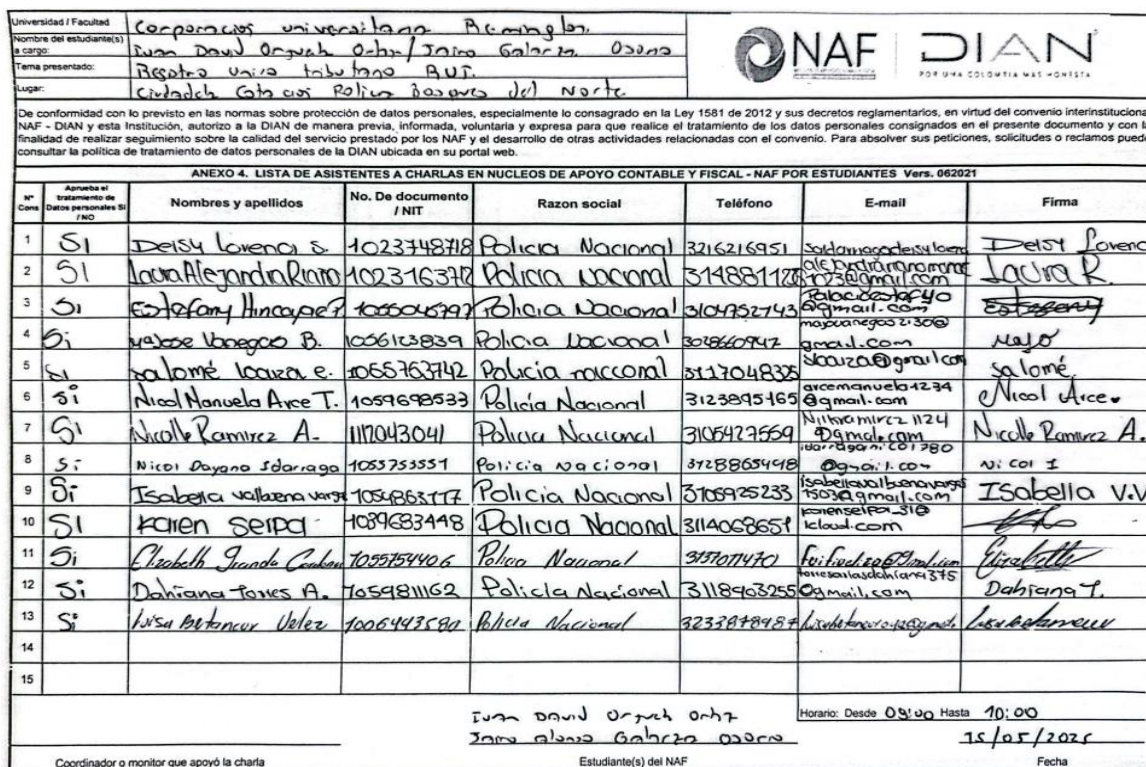 Universidad / Facultad Corporacion universitaria Remington.
Nombre del estudiante(s) a cargo: Ivan David Ortiz / Jairo Galarza Osorio
Tema presentado: Registro Unico tributario RUT.
Lugar: Ciudadela Policia Bosques del Norte
NAF DIAN
POR UNA COLOMBIA MÁS HONESTA
De conformidad con lo previsto en las normas sobre protección de datos personales, especialmente lo consagrado en la Ley 1581 de 2012 y sus decretos reglamentarios, en virtud del convenio interinstitucional
NAF - DIAN y esta Institución, autorizo a la DIAN de manera previa, informada, voluntaria y expresa para que realice el tratamiento de los datos personales consignados en el presente documento y con la
finalidad de realizar seguimiento sobre la calidad del servicio prestado por los NAF y el desarrollo de otras actividades relacionadas con el convenio. Para absolver sus peticiones, solicitudes o reclamos puede
consultar la política de tratamiento de datos personales de la DIAN ubicada en su portal web.
ANEXO 4. LISTA DE ASISTENTES A CHARLAS EN NUCLEOS DE APOYO CONTABLE Y FISCAL - NAF POR ESTUDIANTES Vers. 062021
N° Cons Aprueba el tratamiento de Datos personales SI / NO Nombres y apellidos No. De documento / NIT Razon social Teléfono E-mail Firma
1 SI Deisy Lorena S. 1023748718 Policia Nacional 3216216951 Deisy Lorena
2 SI Laura Alejandra Riano Policia Nacional Laura R.
3 Si Estefany Hincapie P 1055045797 Policia Nacional 3104752743 Palacioestef40@gmail.com Estefany
4 Si Majose Vanegas B. 1056123839 Policia Nacional 3028660947 majovanegas2130@gmail.com Majo
5 SI salomé loaiza e. 1055763742 Policia nacconal 3117048325 salomé
6 Si Nicol Manuela Arce T. 1059698533 Policía Nacional 3123895165 arcemanuela1234@gmail.com Nicol Arce.
7 SI Nicolle Ramirez A. 1117043041 Policia Nacional 3105427559 Nicolle Ramirez A.
8 Si Nicol Dayana Idarraga 1053753551 Policia Nacional 3128865498 idarraganicol780@gmail.com Nicol I
9 Si Isabella vallbuena vargas Policia Nacional 3105925233 isabellavallbuenavargas1503@gmail.com Isabella V.V
10 SI Karen Serpa 1039683448 Policia Nacional 3114068651 karenserpa_31@icloud.com
11 Si Elizabeth Granda Cardona 1055754406 Policia Nacional Elizabeth
12 Si Dahiana Torres A. 1059811162 Policia Nacional 3118903255 torresariasdahiana375@gmail.com Dahiana T.
13 Si Luisa Betancur Velez Policia Nacional 3233878987 Luisa Betancur
14
15
Ivan David Ortiz
Jairo Alonso Galarza Osorio
Horario: Desde 09:00 Hasta 10:00
15/05/2025
Coordinador o monitor que apoyó la charla Estudiante(s) del NAF Fecha